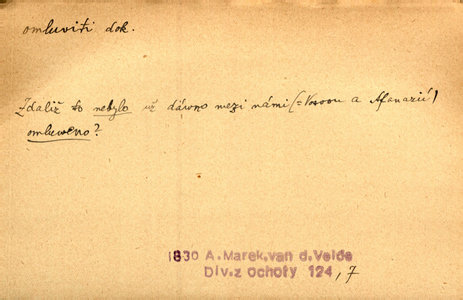 omluviti dok.
Zdaliž to nebylo už dáwno mezi námi (= Vosvou a Afanazií)
omluweno?
1830 A. Marek, van d. Velde
Div. z ochoty 124, 7